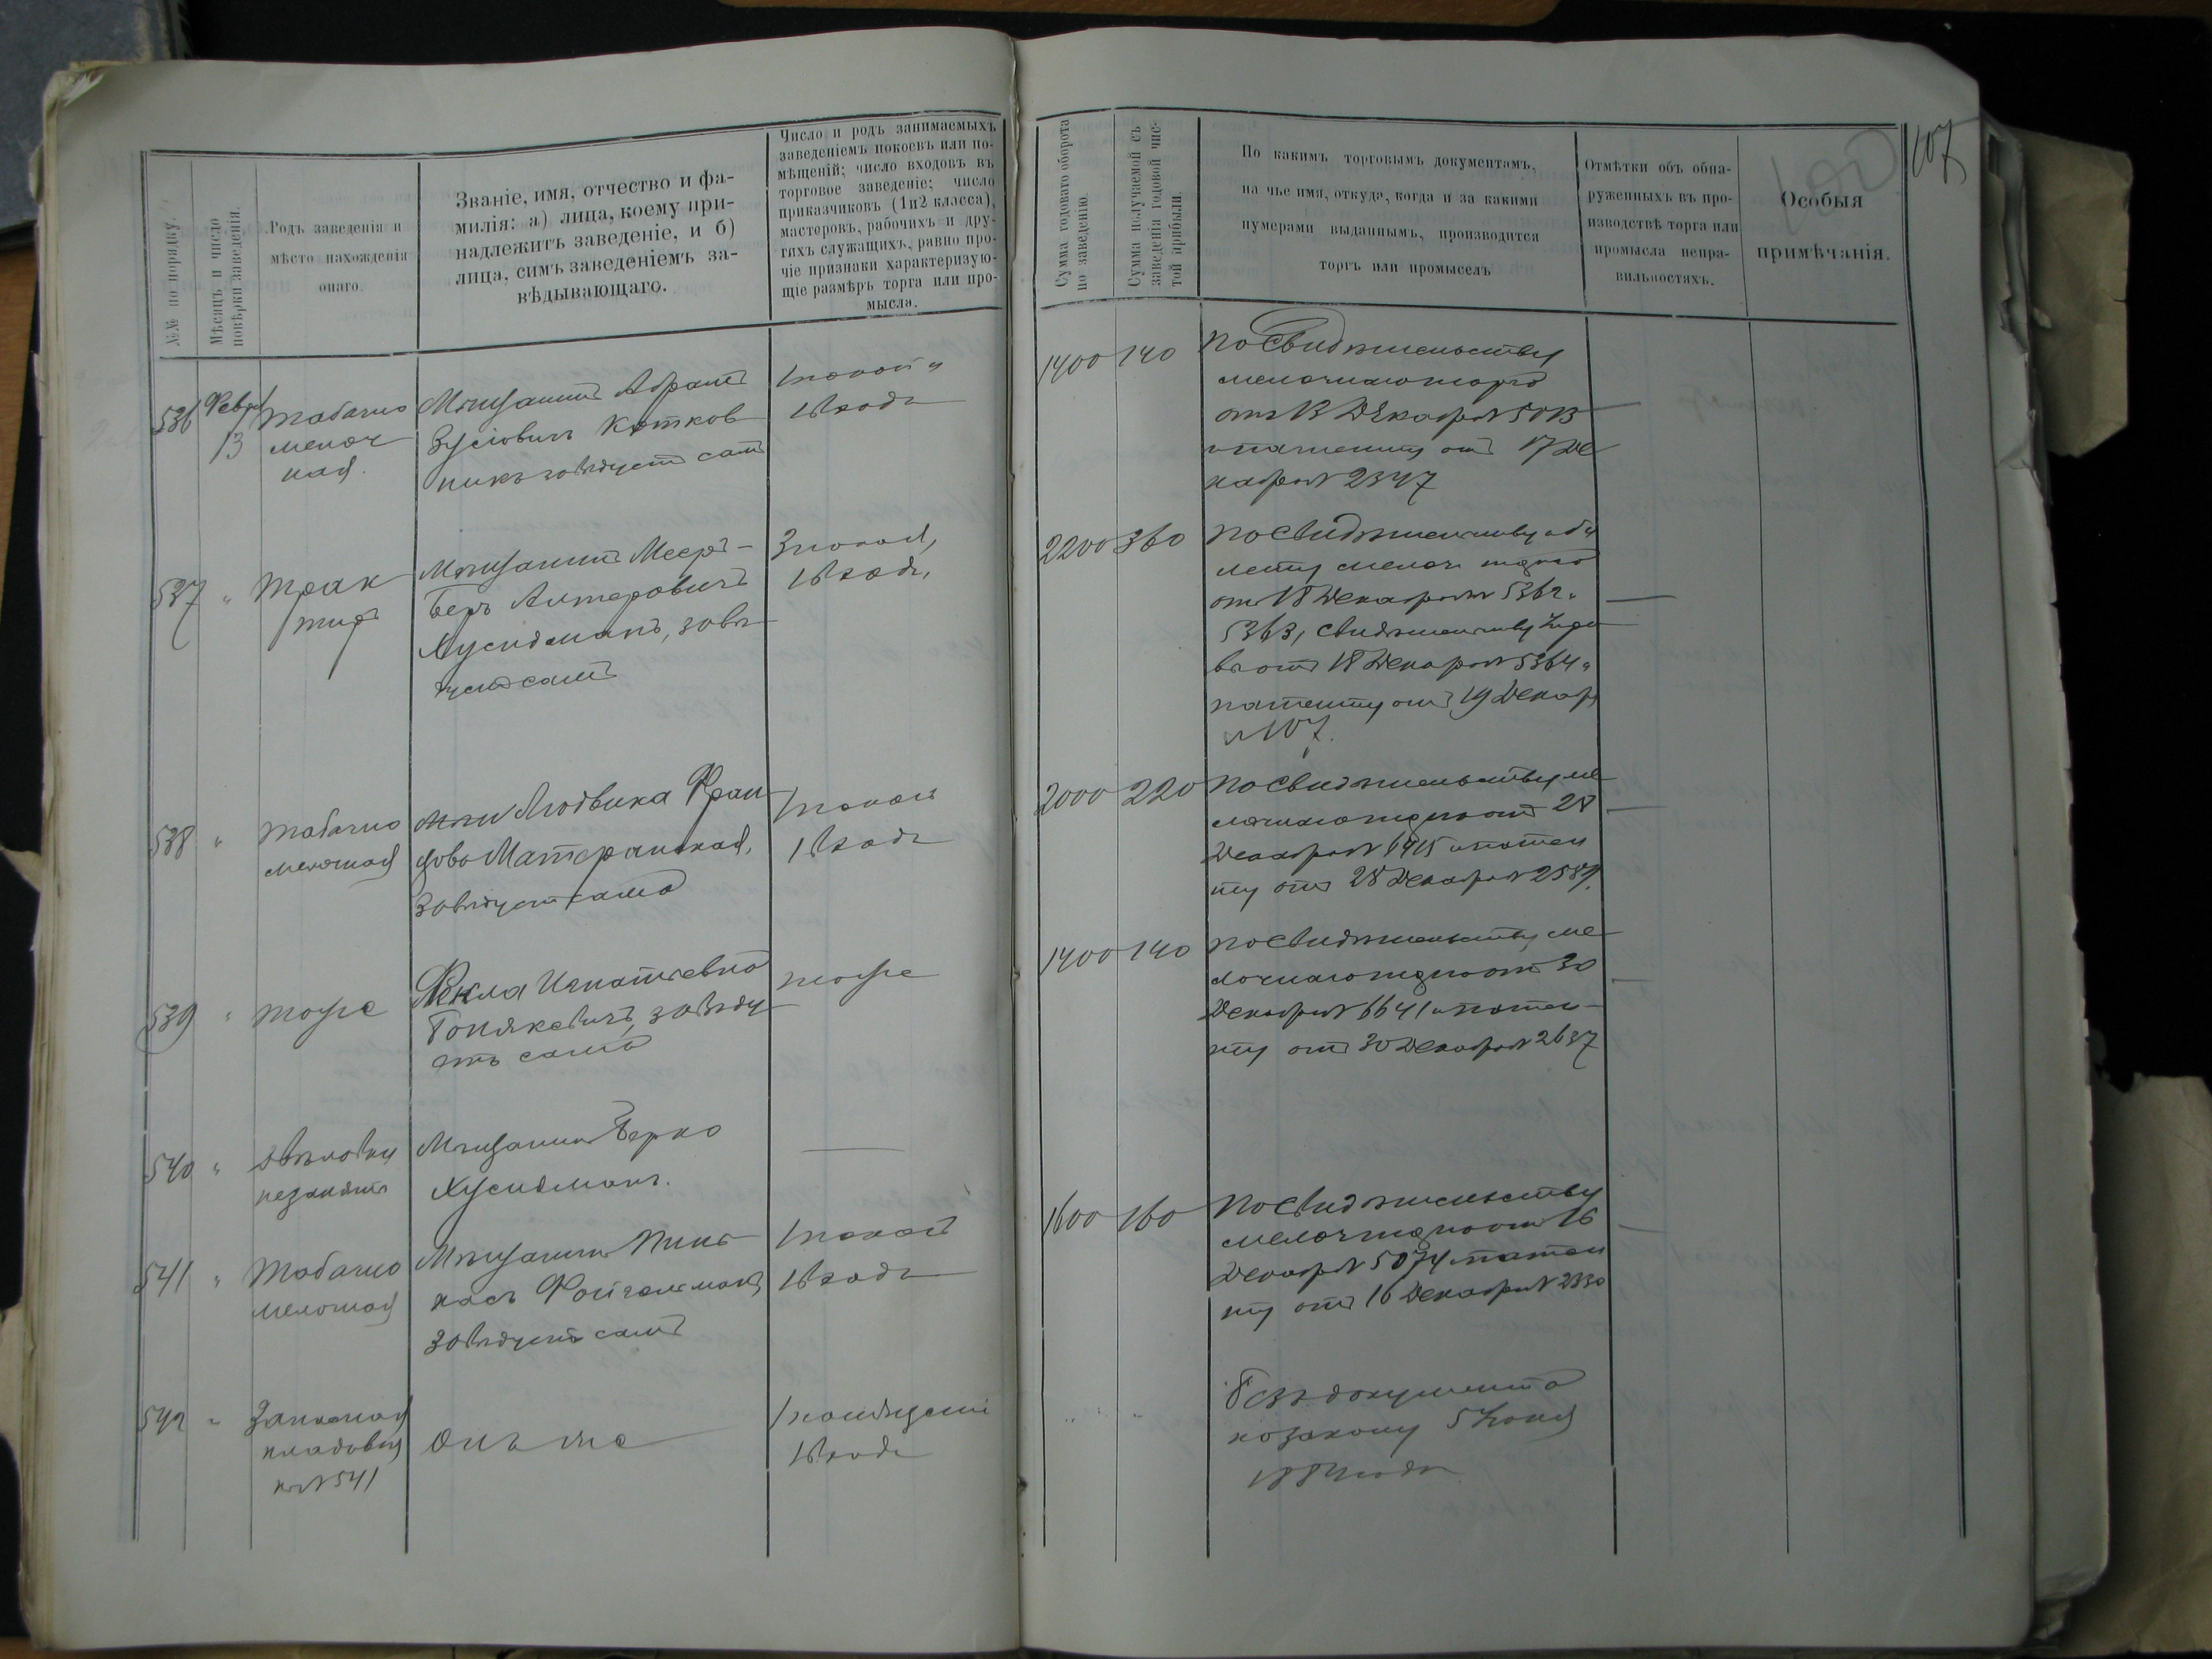 107
№№ по порядку.
Мѣсяцъ и число
повѣрки заведенія.
Родъ заведенія и
мѣсто нахожденія
онаго.
Званіе, имя, отчество и фа-
милія: а) лица, коему при-
надлежитъ заведеніе, и б)
лица, симъ заведеніемъ за-
вѣдывающаго.
Число и родъ занимаемыхъ
заведеніемъ покоевъ или по-
мѣщеній; число входовъ въ
торговое заведеніе; число
приказчиковъ (1и2 класса),
мастеровъ, рабочихъ и дру-
гихъ служащихъ, равно про-
чіе признаки характеризую-
щіе размѣръ торга или про-
мысла.
Сумма годоваго оборота
по заведенію.
Сумма получаемой съ
заведенія годовой чис-
той прибыли.
По какимъ торговымъ документамъ,
на чье имя, откуда, когда и за какими
нумерами выданнымъ, производится
торгъ или промыселъ
Отмѣтки объ обна-
руженныхъ въ про-
изводствѣ торга или
промысла непра-
вильностяхъ.
Особыя
примѣчанія.
536
13
Табачно
мелоч
ная.
Мѣщанинъ Абрамъ
Зусіовичъ Котков
никъ завѣдуетъ самъ
1 покой и
1 входъ
1400 140
По свидѣтельству
мелочнаго торга
отъ 13 Декабря № 5013
и патенту отъ 17 Де
кабря № 2347
537 "
Трак
тиръ
Мѣщанинъ Мееръ-
Беръ Алтеровичъ
Хусидманъ, завѣ
дуетъ самъ
3 покоя,
1 входъ,
2200 360
По свидѣтельству и би
лету мелоч торга
отъ 18 Декабря № 5362 и
5363, свидѣтельству
отъ 18 Декабря № 5364 и
патенту отъ 19 Декабр
№ 107.
538 "
Табачно
мелочная
Мѣщ Людвика Фран
цова
завѣдуетъ сама
1 покой
1 входъ
2000 220
По свидѣтельству ме
лочнаго торга отъ 28
Декабря № 6415 и патен
ту отъ 28 Декабря № 2589.
539 "
Тоже
Фекла Игнатьевна
завѣду
етъ сама
тоже
1400 140
По свидѣтельству ме
лочнаго торга отъ 30
Декабря № 6641 и патен-
ту отъ 30 Декабря № 2637
540 "
незанята
Мѣщанинъ Берко
Хусидманъ.
541 "
Табачно
мелочная
Мѣщанинъ Пинь
насъ
завѣдуетъ самъ
1 покой
1 входъ
1600 160
По свидѣтельству
мелоч торга отъ 16
Декабря № 5074 и патен
ту отъ 16 Декабря № 2330
542 "
кладовая
къ № 541
Онъ же
1 помѣщеніе
1 входъ
" "
Безъ документа
по закону 5 Іюня
1884 года